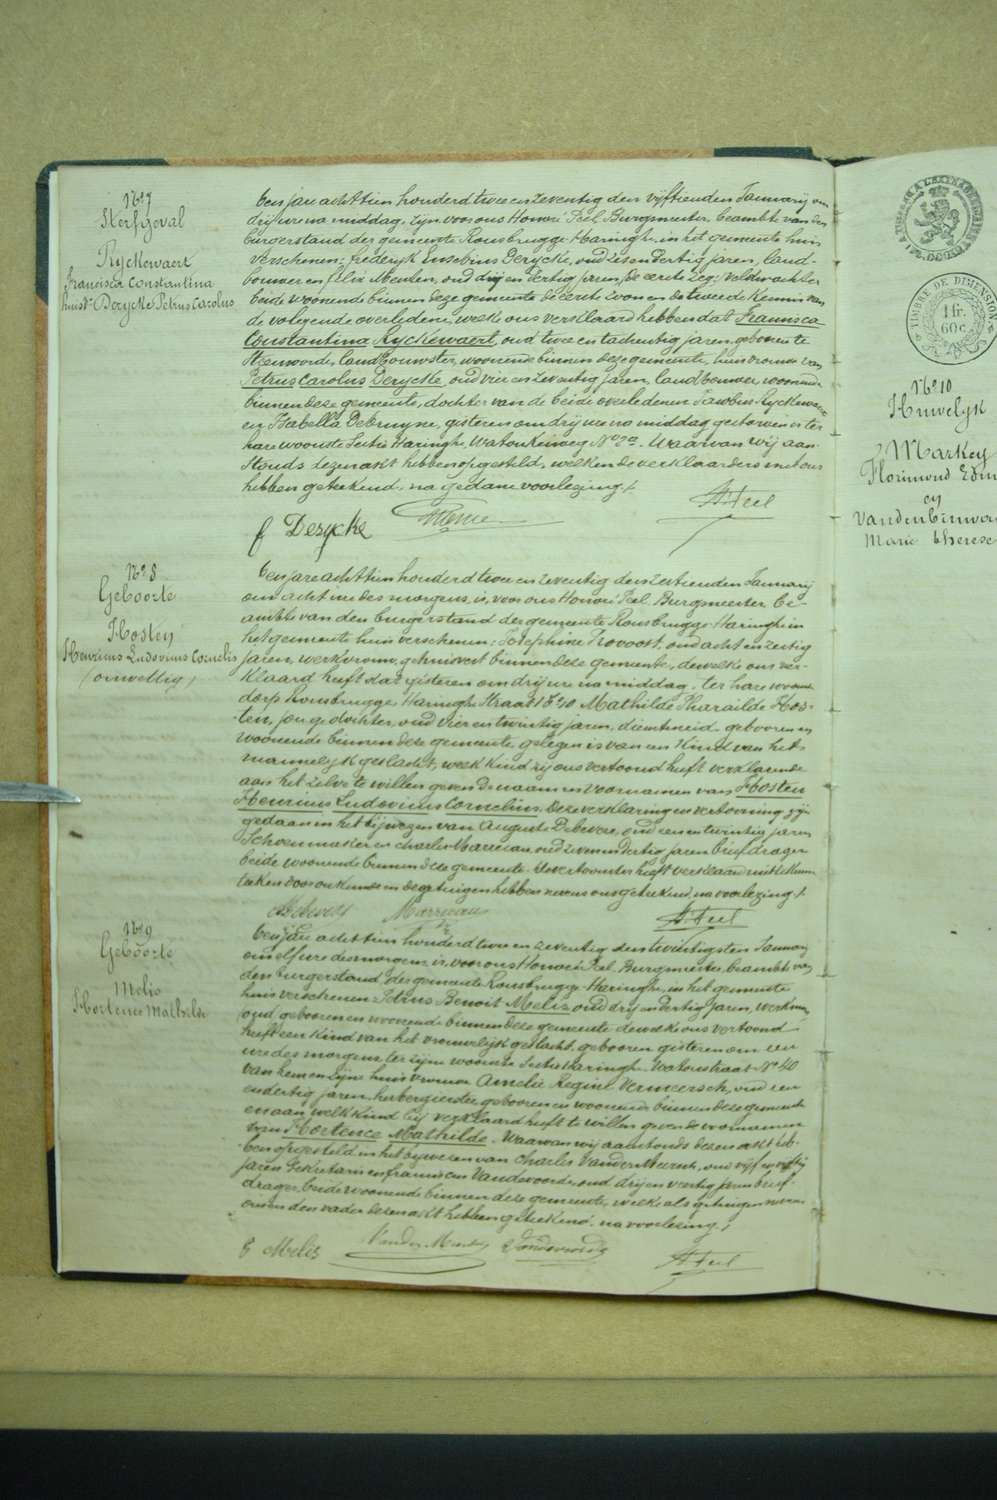 N° 7
Sterfgeval
Ryckewaert
Francisca Constantina
huisv. Derycke Petrus Carolus
Een jare achttien honderd twee en zeventig den vijftienden January om
drij ure na middag, zijn voor ons Honoré Feel, Burgmeester, beambte van den
burgerstand der gemeente Rousbrugge-Haringhe, in het gemeente huis
verschenen: Frederyk Eusebius Derycke, oud zes en dertig jaren, land-
bouwer en Felix Meulen, oud drij en dertig jaren, de eerste zeg. veldwachter
beide woonende binnen deze gemeente de eerste zoon en de tweede kennis van
de volgende overledene, welke ons verklaard hebben dat Francisca
Constantina Ryckewaert, oud twee en tachentig jaren, geboren te
Steenvoorde, landbouwster, woonende binnen deze gemeente, huisvrouw van
Petrus Carolus Derycke, oud vier en zeventig jaren, landbouwer, woonende
binnen deze gemeente, dochter van de beide overledenen Jacobus Ryckewaert
en Isabella Debruyne, gisteren om drij ure na middag gestorven is ter
hare woonste Sectie Haringhe, Watouheirweg N° 22. Waarvan wij aan-
stonds dezen akt hebben opgesteld, welken de verklaarders met ons
hebben geteekend, na gedane voorlezing.
f Derycke
A. Feel
N° 8
Geboorte
Hosten
Henricus Ludovicus Cornelis
(onwettig)
Een jare achttien honderd twee en zeventig den zestienden January
om acht ure des morgens, is, voor ons Honoré Feel, Burgmeester, be-
ambte van den burgerstand der gemeente Rousbrugge-Haringhe in
het gemeente huis verschenen: Josephine Provoost, oud acht en zestig
jaren, werkvrouw, gehuisvest binnen deze gemeente, dewelke ons ver-
klaard heeft dat gisteren om drij ure na middag, ter hare woonst
dorp Rousbrugge, Haringhe Straat N° 10 Mathilde Pharailde Hos-
ten, jonge dochter, oud vier en twintig jaren, dienstmeid, gebooren en
woonende binnen deze gemeente, gelegen is van een kind van het
mannelyk geslacht, welk kind zij ons vertoond heeft verklarende
aan het zelve te willen geven de naam en voornamen van Hosten
Henricus Ludovicus Cornelius. Deze verklaring en vertooning zijn
gedaan in het bijwezen van Auguste Debevere, oud een en twintig jaren
Schoenmaker en Charles Marreau oud zeven en dertig jaren briefdrager
beide woonende binnen deze gemeente. De vertoonster heeft verklaard niet te kunnen
teekenen door onkunde en de getuigen hebben nevens ons geteekend, na voorlezing.
Debevere Marreau
A. Feel
N° 9
Geboorte
Melis
Hortence Mathilde
Een jare achttien honderd twee en zeventig den twintigsten January
om elf ure des morgens, is, voor ons Honoré Feel, Burgmeester, beambte van
den burgerstand der gemeente Rousbrugge-Haringhe, in het gemeente
huis verschenen Petrus Benoit Melis, oud drij en dertig jaren, werkman,
geboren en woonende binnen deze gemeente dewelke ons vertoond
heeft een kind van het vrouwelyk geslacht, gebooren gisteren om een
ure des morgens ter zijne woonste Sectie Haringhe, Watoustraat N° 40
van hem en zijne huisvrouw Amelie Regine Vermeersch, oud een
en dertig jaren, herbergierster gebooren en woonende binnen deze gemeente
en aan welk kind hij verklaard heeft te willen geven de voornamen
van Hortence Mathilde. Waarvan wij aanstonds dezen akt heb-
ben opgesteld in het bijwezen van Charles Vander Meersch, oud vijf en vijftig
jaren Sekretaris en Franciscus Vandevoorde oud drij en veertig jaren brief-
drager beide woonende binnen deze gemeente, welke als getuigen nevens
ons en den vader dezen akt hebben geteekend, na voorlezing.
B Melis
Vander Meersch
Vandevoorde
A. Feel
TIMBRE DE DIMENSION
1 fr.
60 c.
N° 10
Huwelyk
Markey
Florimond Edm
en
Vandenbinwen
Marie therese